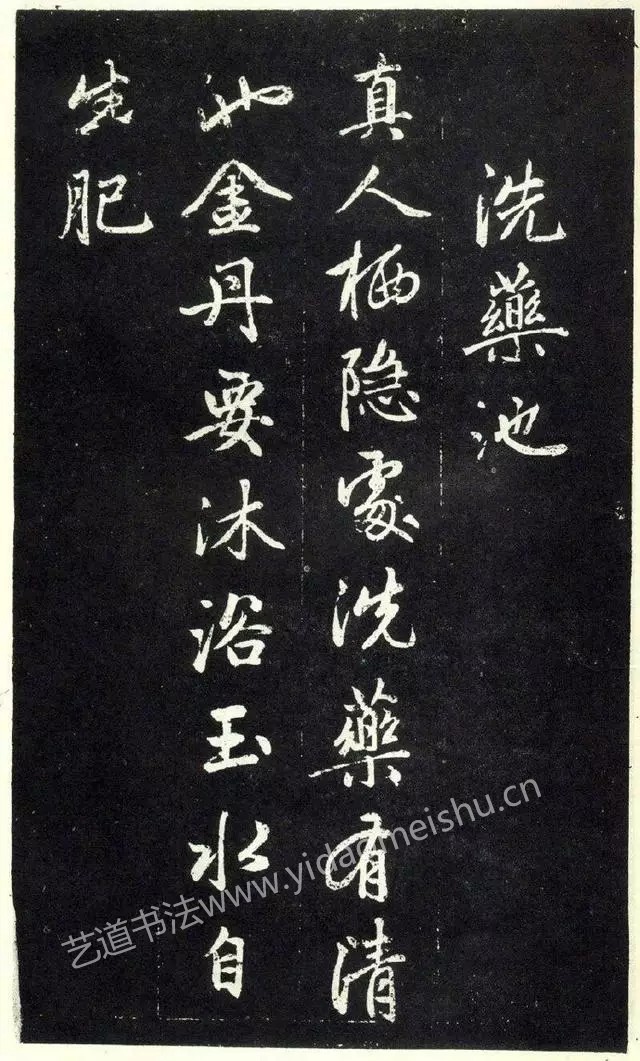 洗藥池
真人栖隐處洗藥有清
池金丹要沐浴玉水自
生肥
艺道书法www.yidaomeishu.cn